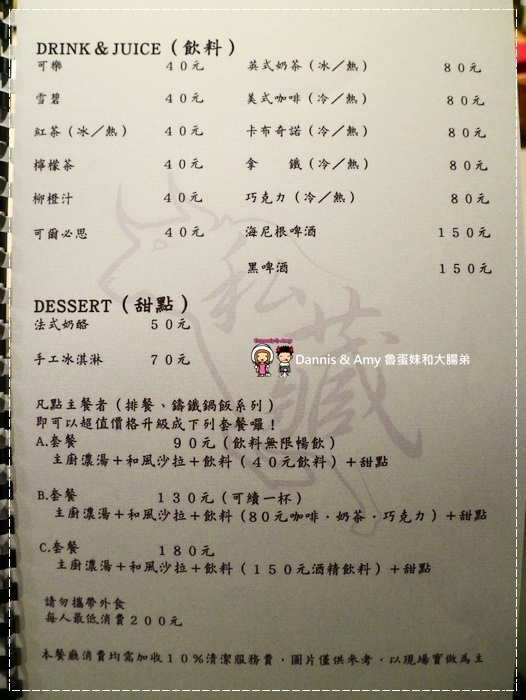 DRINK & JUICE（飲料）
可樂 40元 英式奶茶（冰／熱） 80元
雪碧 40元 美式咖啡（冷／熱） 80元
紅茶（冰／熱） 40元 卡布奇諾（冷／熱） 80元
檸檬茶 40元 拿　鐵（冷／熱） 80元
柳橙汁 40元 巧克力（冷／熱） 80元
可爾必思 40元 海尼根啤酒 150元
黑啤酒 150元
DESSERT（甜點）
法式奶酪 50元
手工冰淇淋 70元
私藏
Dannis & Amy
Dannis & Amy 魯蛋妹和大腸弟
凡點主餐者（排餐、鑄鐵鍋飯系列）
即可以超值價格升級成下列套餐囉！
A.套餐 90元（飲料無限暢飲）
主廚濃湯＋和風沙拉＋飲料（40元飲料）＋甜點
B.套餐 130元（可續一杯）
主廚濃湯＋和風沙拉＋飲料（80元咖啡．奶茶．巧克力）＋甜點
C.套餐 180元
主廚濃湯＋和風沙拉＋飲料（150元酒精飲料）＋甜點
請勿攜帶外食
每人最低消費200元
本餐廳消費均需加收10%清潔服務費，圖片僅供參考，以現場實做為主